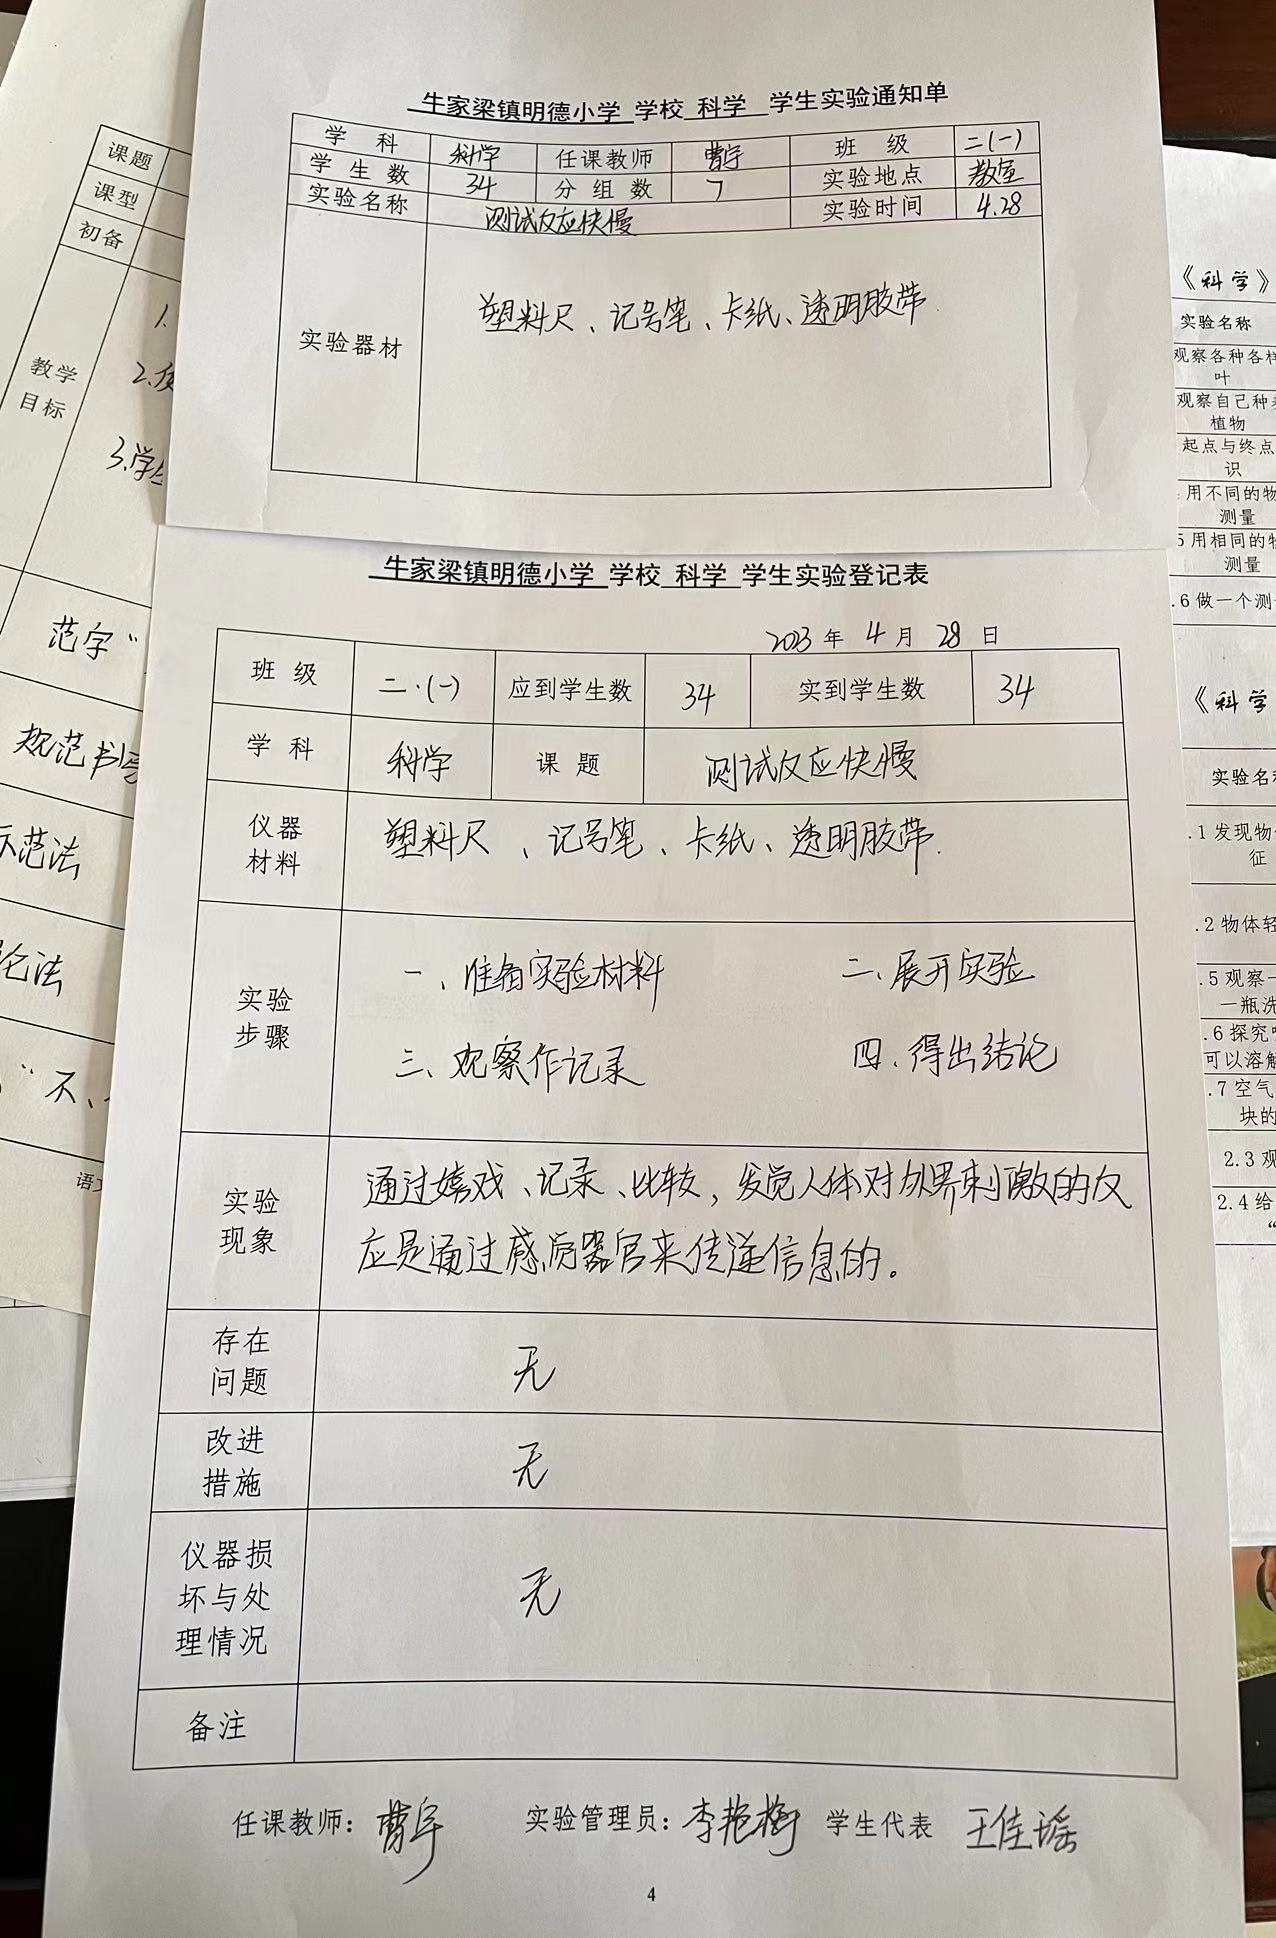 牛家梁镇明德小学 学校 科学 学生实验通知单
学 科 科学 任课教师 曹宇 班 级 二(一)
学 生 数 34 分 组 数 7 实验地点 教室
实验名称 测试反应快慢 实验时间 4.28
实验器材 塑料尺、记号笔、卡纸、透明胶带.
牛家梁镇明德小学 学校 科学 学生实验登记表
2023 年 4 月 28 日
班 级 二.(一) 应到学生数 34 实到学生数 34
学 科 科学 课 题 测试反应快慢
仪器
材料
塑料尺、记号笔、卡纸、透明胶带.
实验
步骤
一、准备实验材料 二、展开实验
三、观察作记录 四、得出结论
实验
现象
通过嬉戏、记录、比较,发觉人体对外界刺激的反
应是通过感觉器官来传递信息的。
存在
问题
无
改进
措施
无
仪器损
坏与处
理情况
无
备注
任课教师：曹宇 实验管理员：李艳梅 学生代表 王佳瑶
4
课题
课型
初备
教学
目标
1.
2.
3.学生
范字“
规范书写
示范法
论法
”不、
语文
《科学》
实验名称
观察各种各样
叶
观察自己种
植物
起点与终点
识
用不同的物
测量
5 用相同的物
测量
.6 做一个测
《科学
实验名称
.1 发现物
征
.2 物体轻
.5 观察一
一瓶洗
.6 探究
可以溶解
.7 空气
块的
2.3 观
2.4 给
“